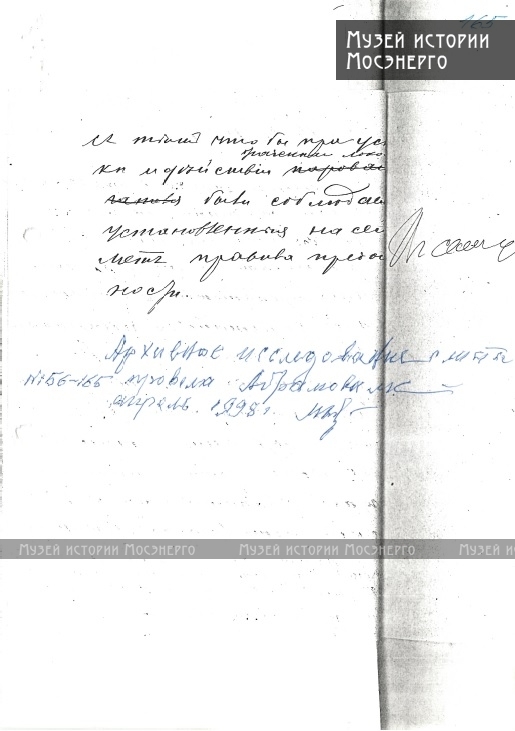 165
Музей истории
Мосэнерго
тѣмъ чтобы при ус
кѣ и дѣйствіи
были соблюдае
установленныя на сей
метъ правила предос
ности.
Архивные исследования с листа
№156-165 провела Абрамовы
апрель 1998г.
Музей истории Мосэнерго Музей истории Мосэнерго Музей ист